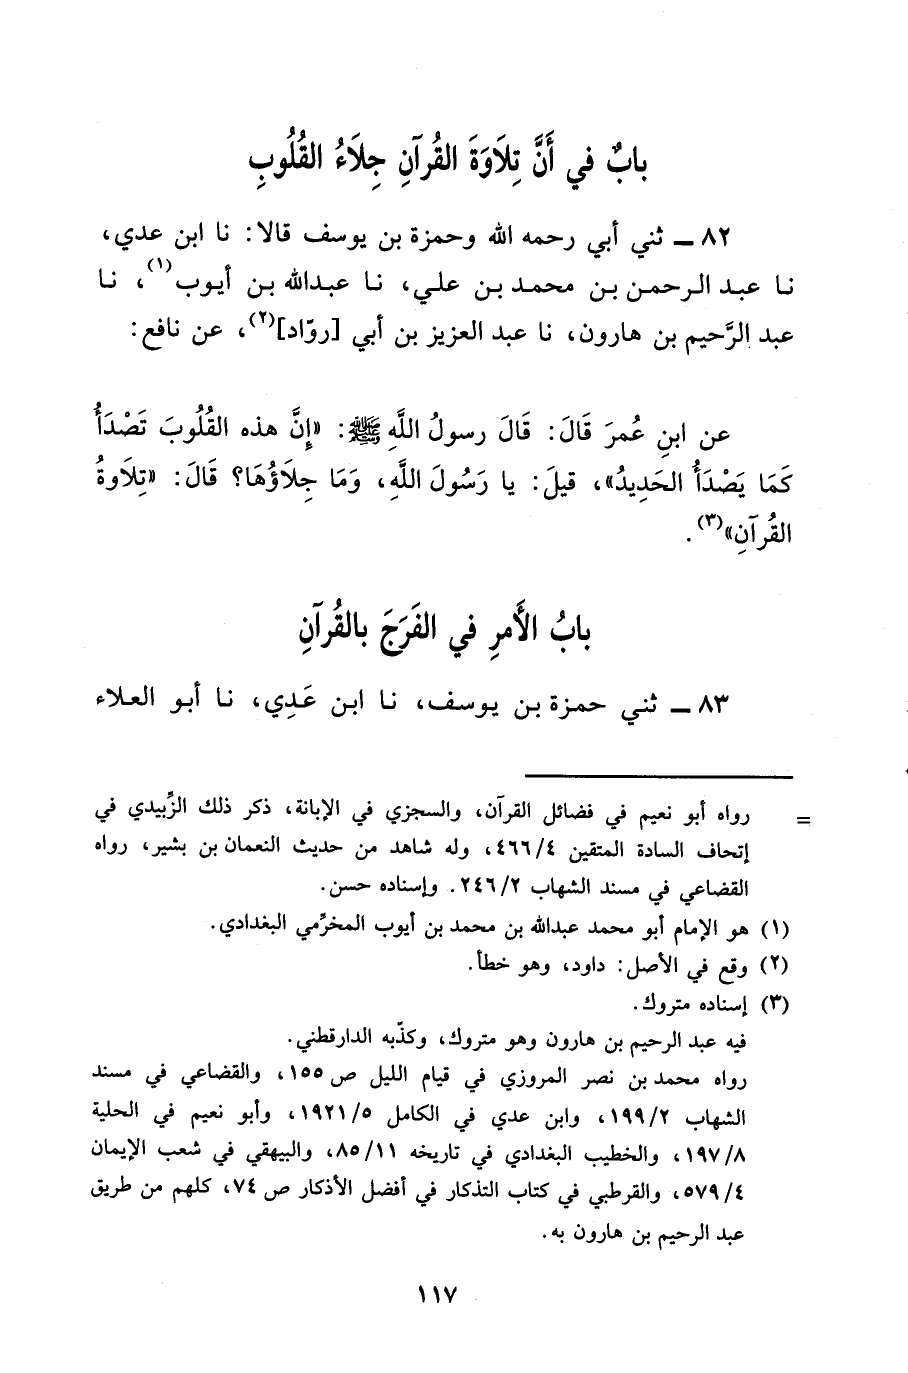 بابٌ في أَنَّ تِلَاوَةَ القُرآنِ جِلَاءُ القُلُوبِ
٨٢ ـ ثني أبي رحمه الله وحمزة بن يوسف قالا: نا ابن عدي،
نا عبد الرحمن بن محمد بن علي، نا عبدالله بن أيوب(١)، نا
عبد الرَّحيم بن هارون، نا عبد العزيز بن أبي [روّاد](٢)، عن نافع:
عن ابنِ عُمرَ قَالَ: قَالَ رسولُ اللَّهِ ﷺ: «إِنَّ هذه القُلُوبَ تَصْدَأُ
كَمَا يَصْدَأُ الحَدِيدُ»، قيلَ: يا رَسُولَ اللَّهِ، وَمَا جِلَاؤُهَا؟ قَالَ: «تِلَاوةُ
القُرآنِ»(٣).
بابُ الأَمرِ في الفَرَجَ بالقُرآنِ
٨٣ ـ ثني حمزة بن يوسف، نا ابن عَدِي، نا أبو العلاء
= رواه أبو نعيم في فضائل القرآن، والسجزي في الإبانة، ذكر ذلك الزَّبيدي في
إتحاف السادة المتقين ٤٦٦/٤، وله شاهد من حديث النعمان بن بشير، رواه
القضاعي في مسند الشهاب ٢٤٦/٢. وإسناده حسن.
(١) هو الإمام أبو محمد عبدالله بن محمد بن أيوب المخرِّمي البغدادي.
(٢) وقع في الأصل: داود، وهو خطأ.
(٣) إسناده متروك.
فيه عبد الرحيم بن هارون وهو متروك، وكذّبه الدارقطني.
رواه محمد بن نصر المروزي في قيام الليل ص ١٥٥، والقضاعي في مسند
الشهاب ١٩٩/٢، وابن عدي في الكامل ١٩٢١/٥، وأبو نعيم في الحلية
١٩٧/٨، والخطيب البغدادي في تاريخه ٨٥/١١، والبيهقي في شعب الإيمان
٥٧٩/٤، والقرطبي في كتاب التذكار في أفضل الأذكار ص ٧٤، كلهم من طريق
عبد الرحيم بن هارون به.
١١٧